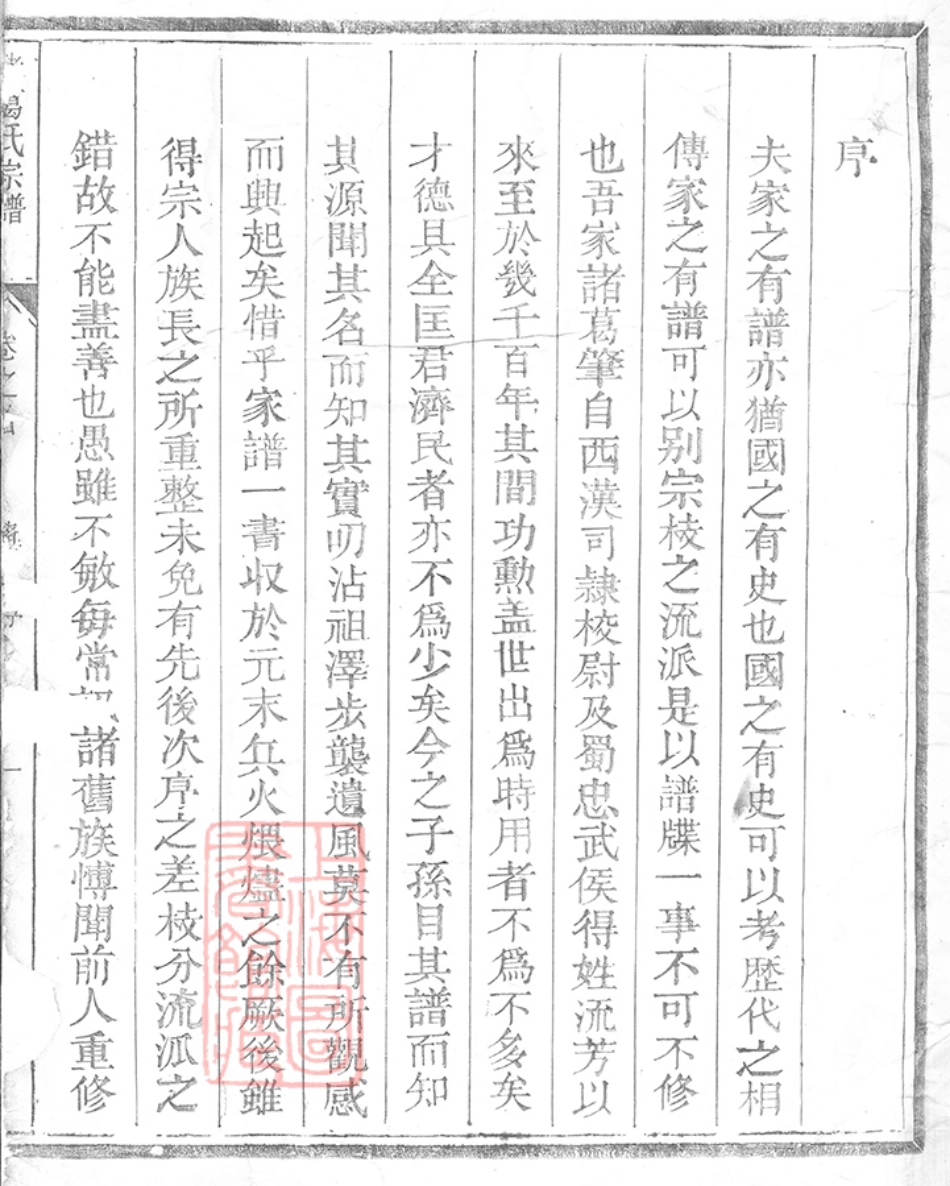 序
夫家之有譜亦猶國之有史也國之有史可以考歴代之相
傳家之有譜可以别宗枝之流派是以譜牒一事不可不修
也吾家諸葛肇自西漢司隷校尉及蜀忠武侯得姓流芳以
來至於幾千百年其間功勲盖世出爲時用者不爲不多矣
才德具全匡君濟民者亦不爲少矣今之子孫目其譜而知
其源聞其名而知其實叨沾祖澤步襲遺風莫不有所觀感
而興起矣惜乎家譜一書収於元末兵火煨燼之餘厥後雖
得宗人族長之所重整未免有先後次序之差枝分流泒之
錯故不能盡善也愚雖不敏每常諸舊族愽聞前人重修
葛氏宗譜